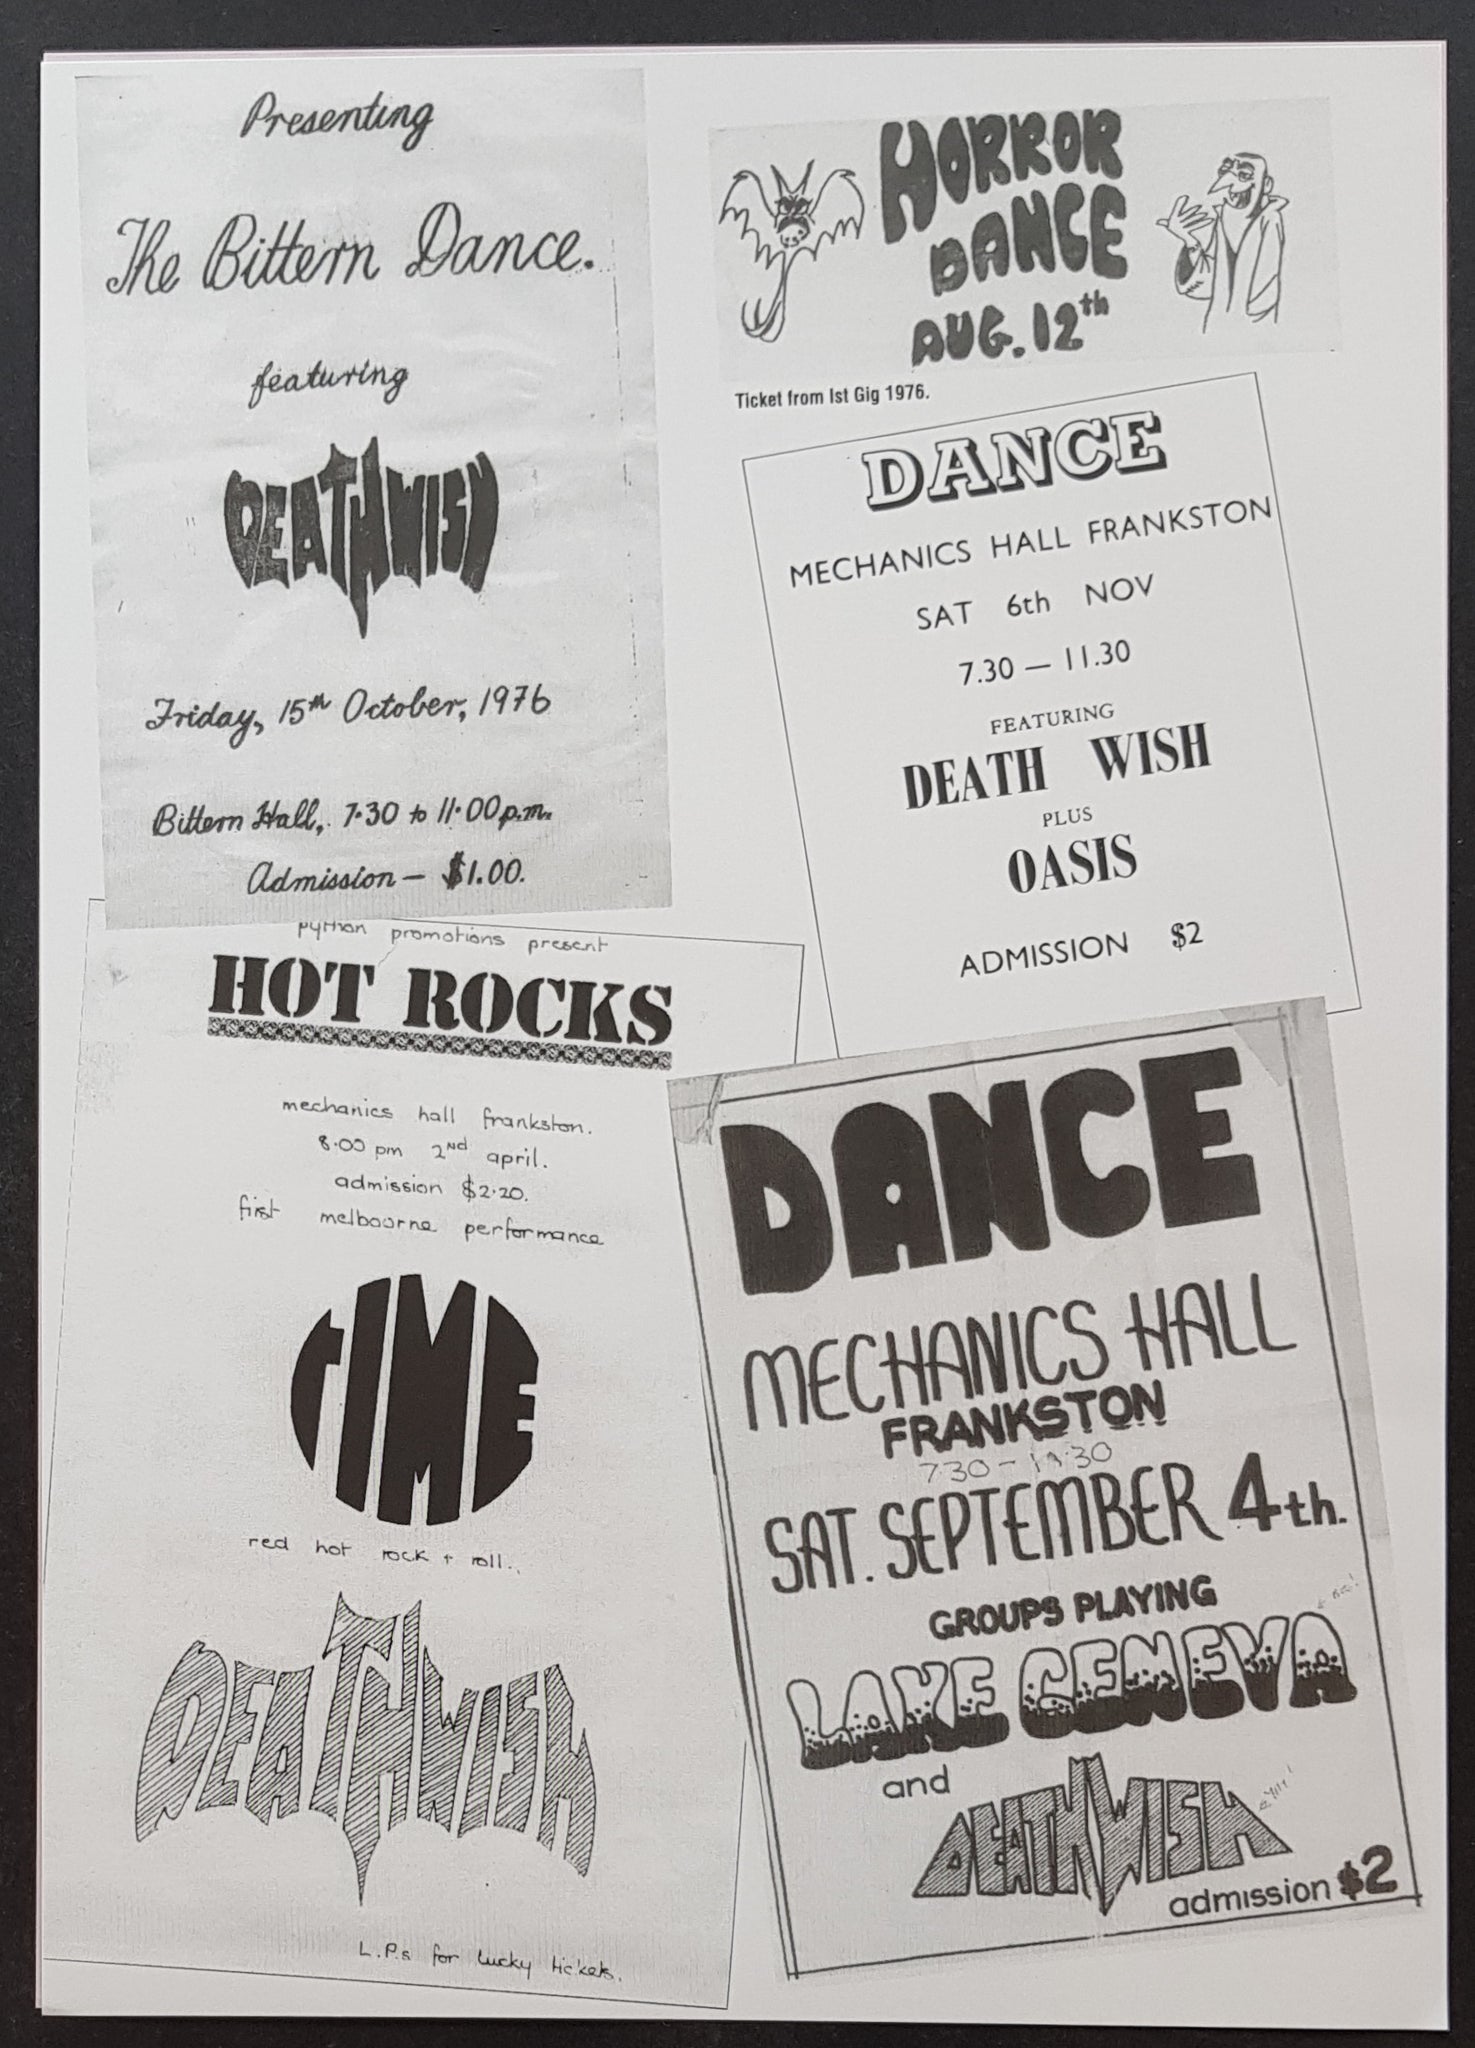 Presenting
The Bittern Dance.
featuring
DEATHWISH
Friday, 15th October, 1976
Bittern Hall, 7.30 to 11.00 p.m.
Admission — $1.00.
HORROR
DANCE
AUG. 12th
Ticket from Ist Gig 1976.
DANCE
MECHANICS HALL FRANKSTON
SAT 6th NOV
7.30 — 11.30
FEATURING
DEATH WISH
PLUS
OASIS
ADMISSION $2
python promotions present
HOT ROCKS
mechanics hall frankston.
8.00 pm 2nd april.
admission $2.20.
first melbourne performance
TIME
red hot rock + roll.
DEATHWISH
L.P.s for lucky tickets.
DANCE
MECHANICS HALL
FRANKSTON
7.30 - 11.30
SAT. SEPTEMBER 4th.
GROUPS PLAYING
LAKE GENEVA
and
DEATHWISH
admission $2